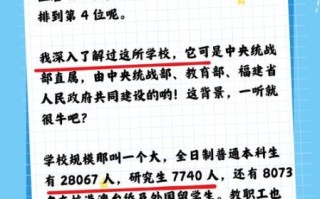 排到第 4 位呢。
我深入了解过这所学校，它可是中央统战
部直属，由中央统战部、教育部、福建省
人民政府共同建设的哟！这背景，一听就
很牛吧？
学校规模那叫一个大，全日制普通本科生
有 28067 人，研究生 7740 人，还有 8073
名在校港澳台侨及外国留学生。教职工也